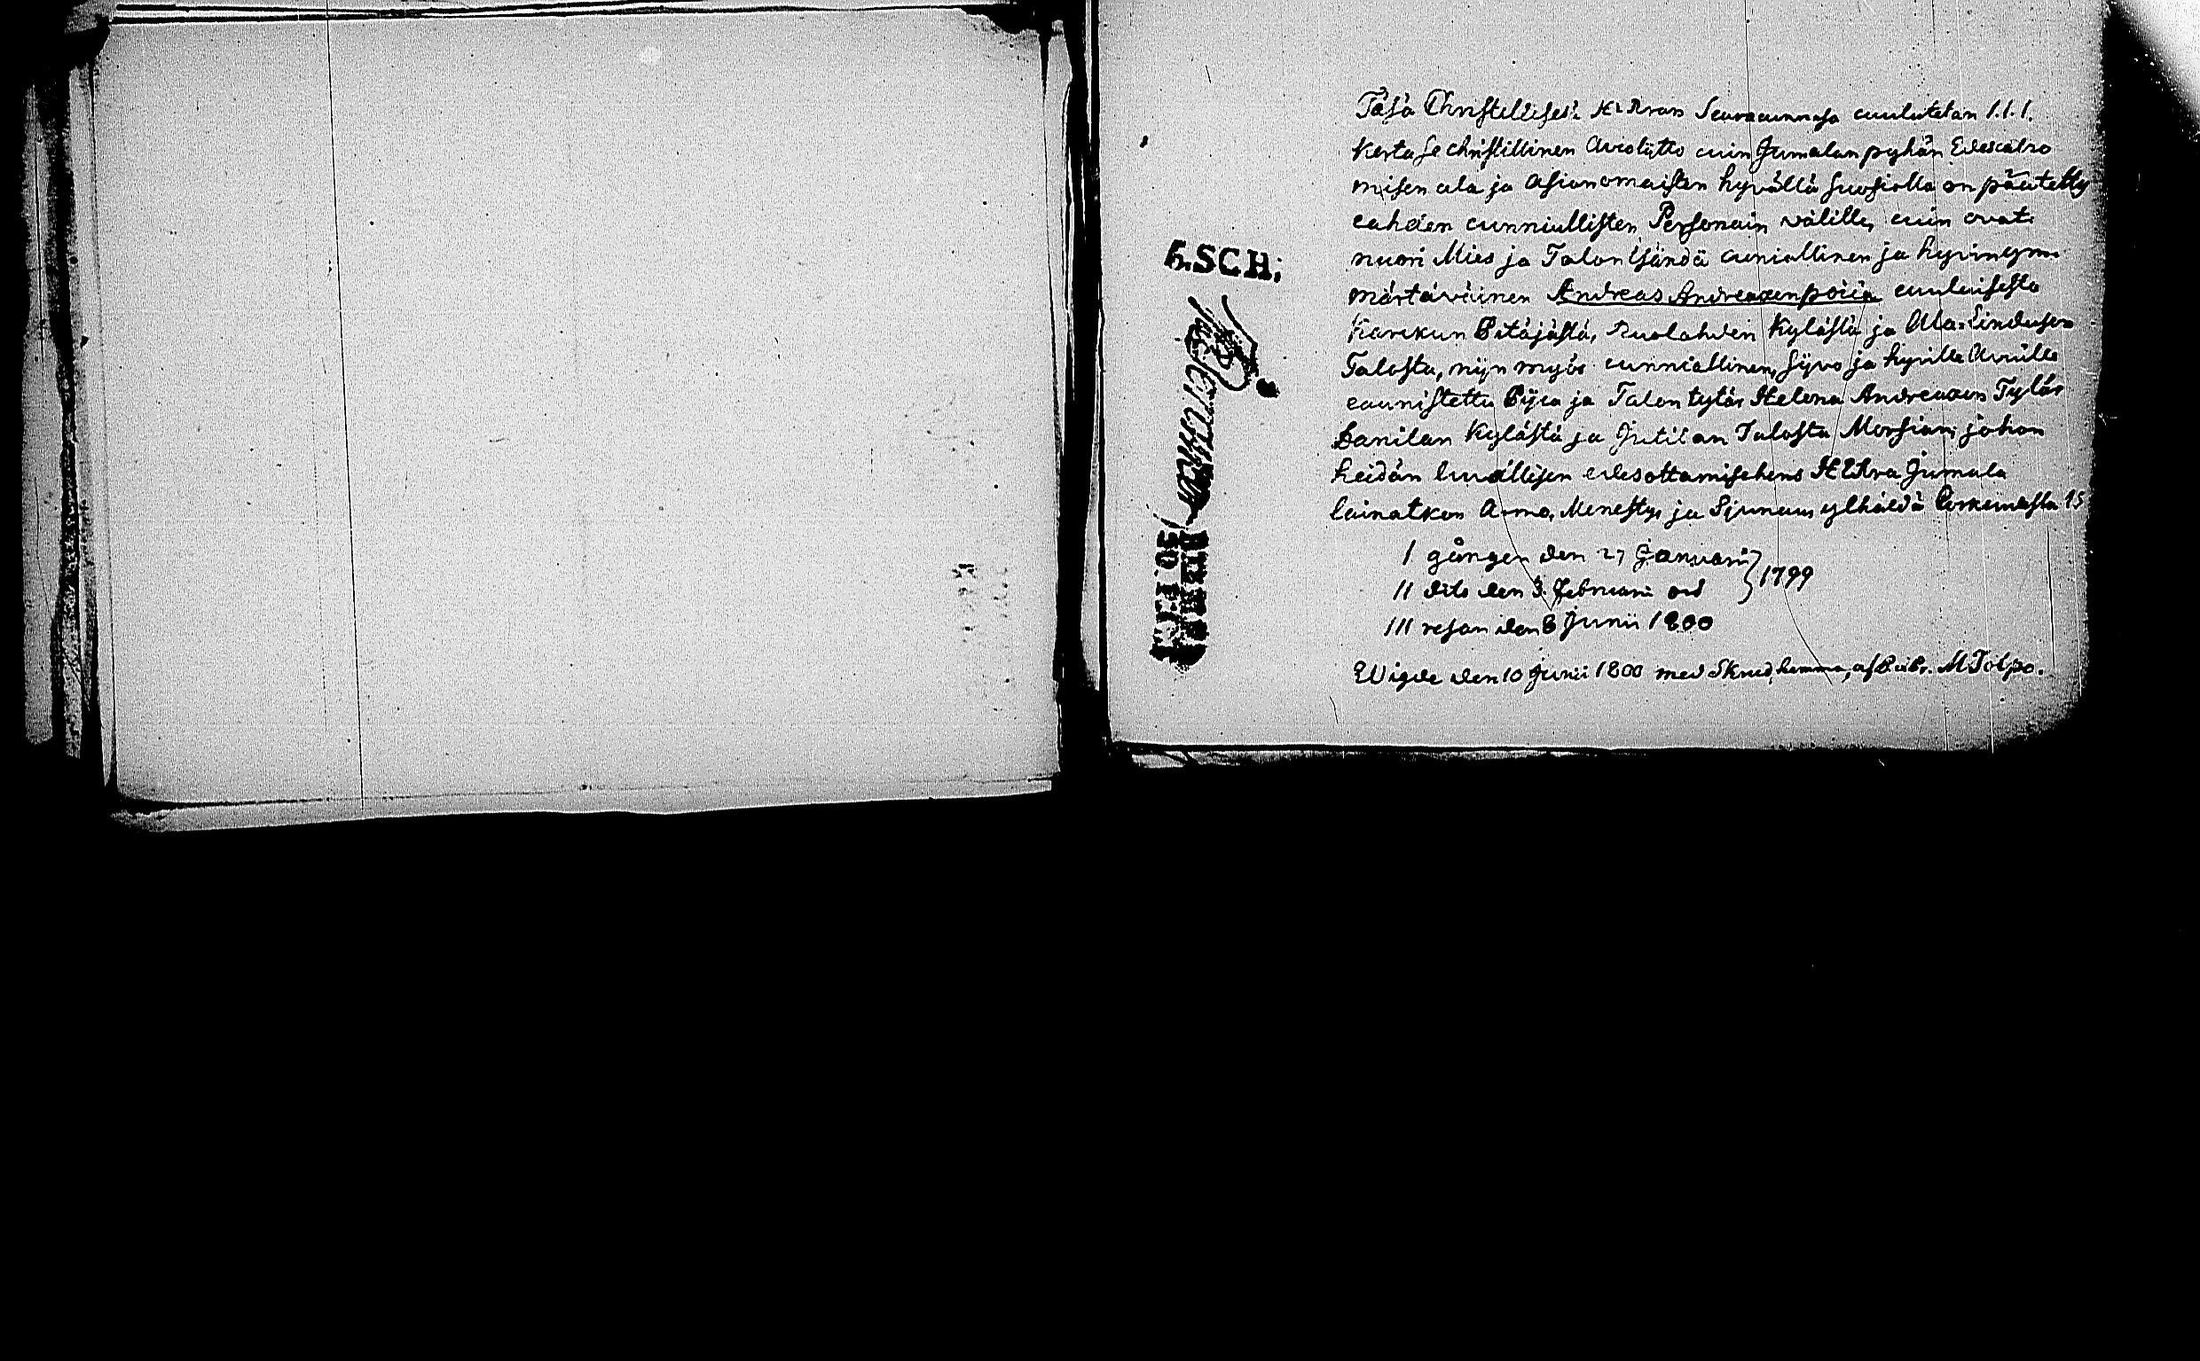 Täsä Christellisesä HERran Seuracunnasa cuulutetan 1.1.1.
kerta se christillinen Aviokijtto cuin Jumalan pyhän Edescatzo
misen ala ja Asianomaisten hyvällä suosiolla on päätetty
cahden cunniallisten Personain välille, cuin ovat:
nuori Mies ja Talon Isändä cuniallinen ja hyvinym-
märtäväinen Andreas Andreaxenpoica cuuluisesta
Karckun Pitäjästä, Kylästä ja
Talosta, nijn myös cunniallinen, Sijvo ja hyvillä Avuilla
caunistettu Pijca ja Talon tytär Helena Andreaxen Tytär
Kylästä ja Jutilan Talosta Morsian; johon
heidän luvallisen edesottamisehens HERra Jumala
lainatkon Armo, Menestys ja Sijunaus ylhäldä Corkeudesta
I gången den 27 Januarii } 1799
II dito den 3 Februarii
III resan den 8 Junii 1800
Wigde den 10 Junii 1800 med af M Tolpo.
H.SCH;